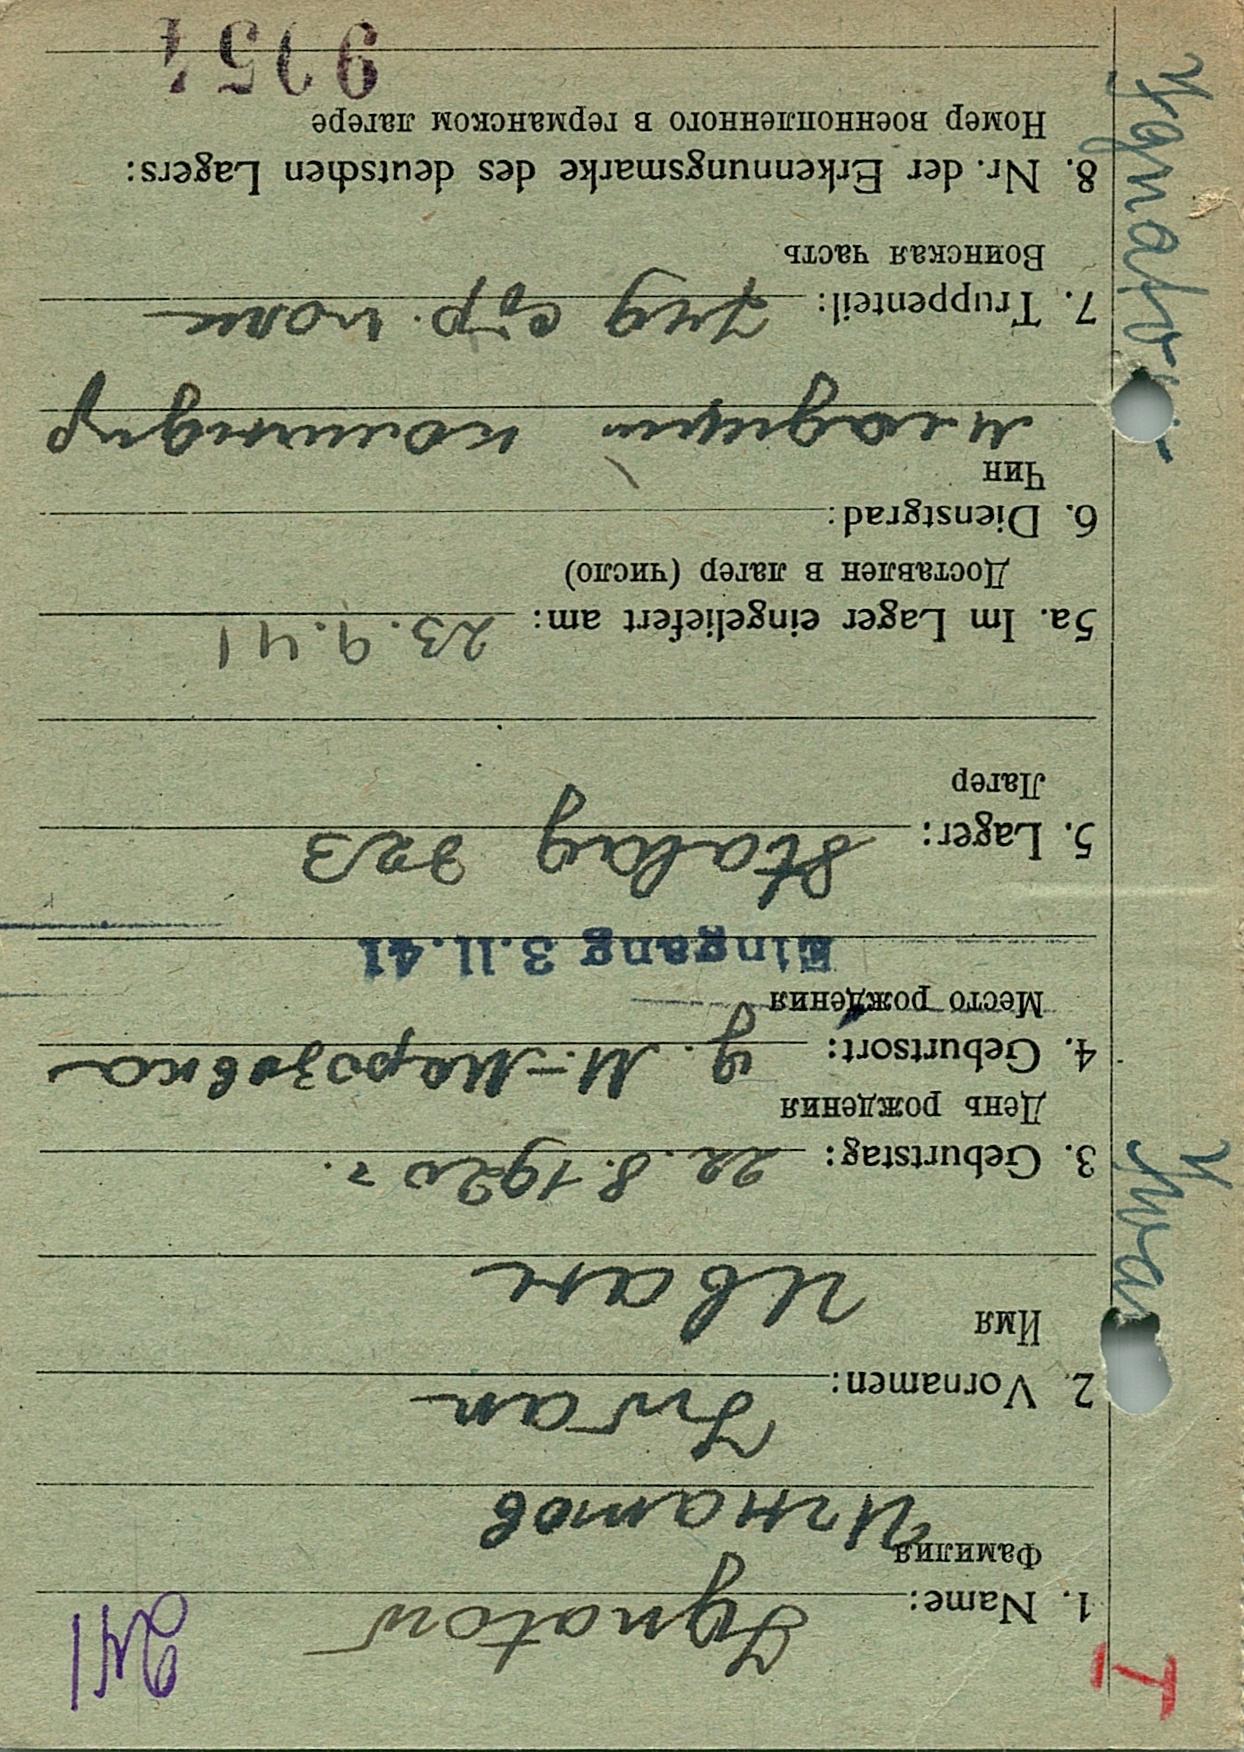 I
241
1. Name: Ignatow
Фамилия Игнатов
2. Vornamen: Iwan
Имя Иван
3. Geburtstag: 22.8.1920 г.
День рождения
4. Geburtsort: д. М-Марозовка
Место рождения
Eingang 3.11.41
5. Lager: Stalag 323
Лагер
5a. Im Lager eingeliefert am: 23.9.41
Доставлен в лагер (число)
6. Dienstgrad:
Чин
младший командир
7. Truppenteil: стр. полк
Воинская часть
8. Nr. der Erkennungsmarke des deutschen Lagers:
Номер военнопленного в германском лагере
Iwan
Ignatow